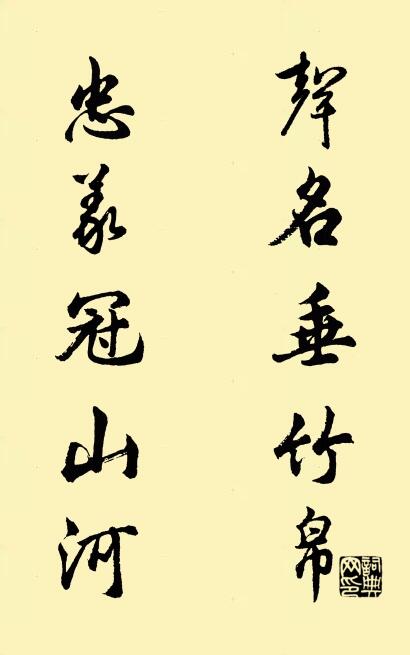 聲名垂竹帛
忠義冠山河
詞典网印